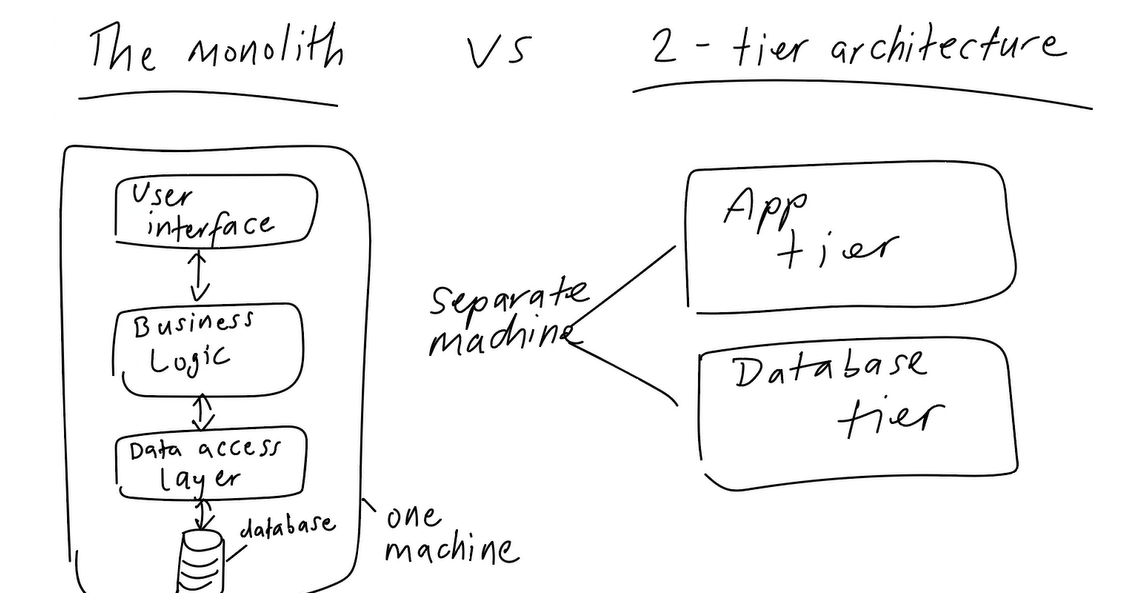 The monolith vs 2-tier architecture
User
interface
Business
Logic
Data access
layer
database
one
machine
separate
machine
App
tier
Database
tier